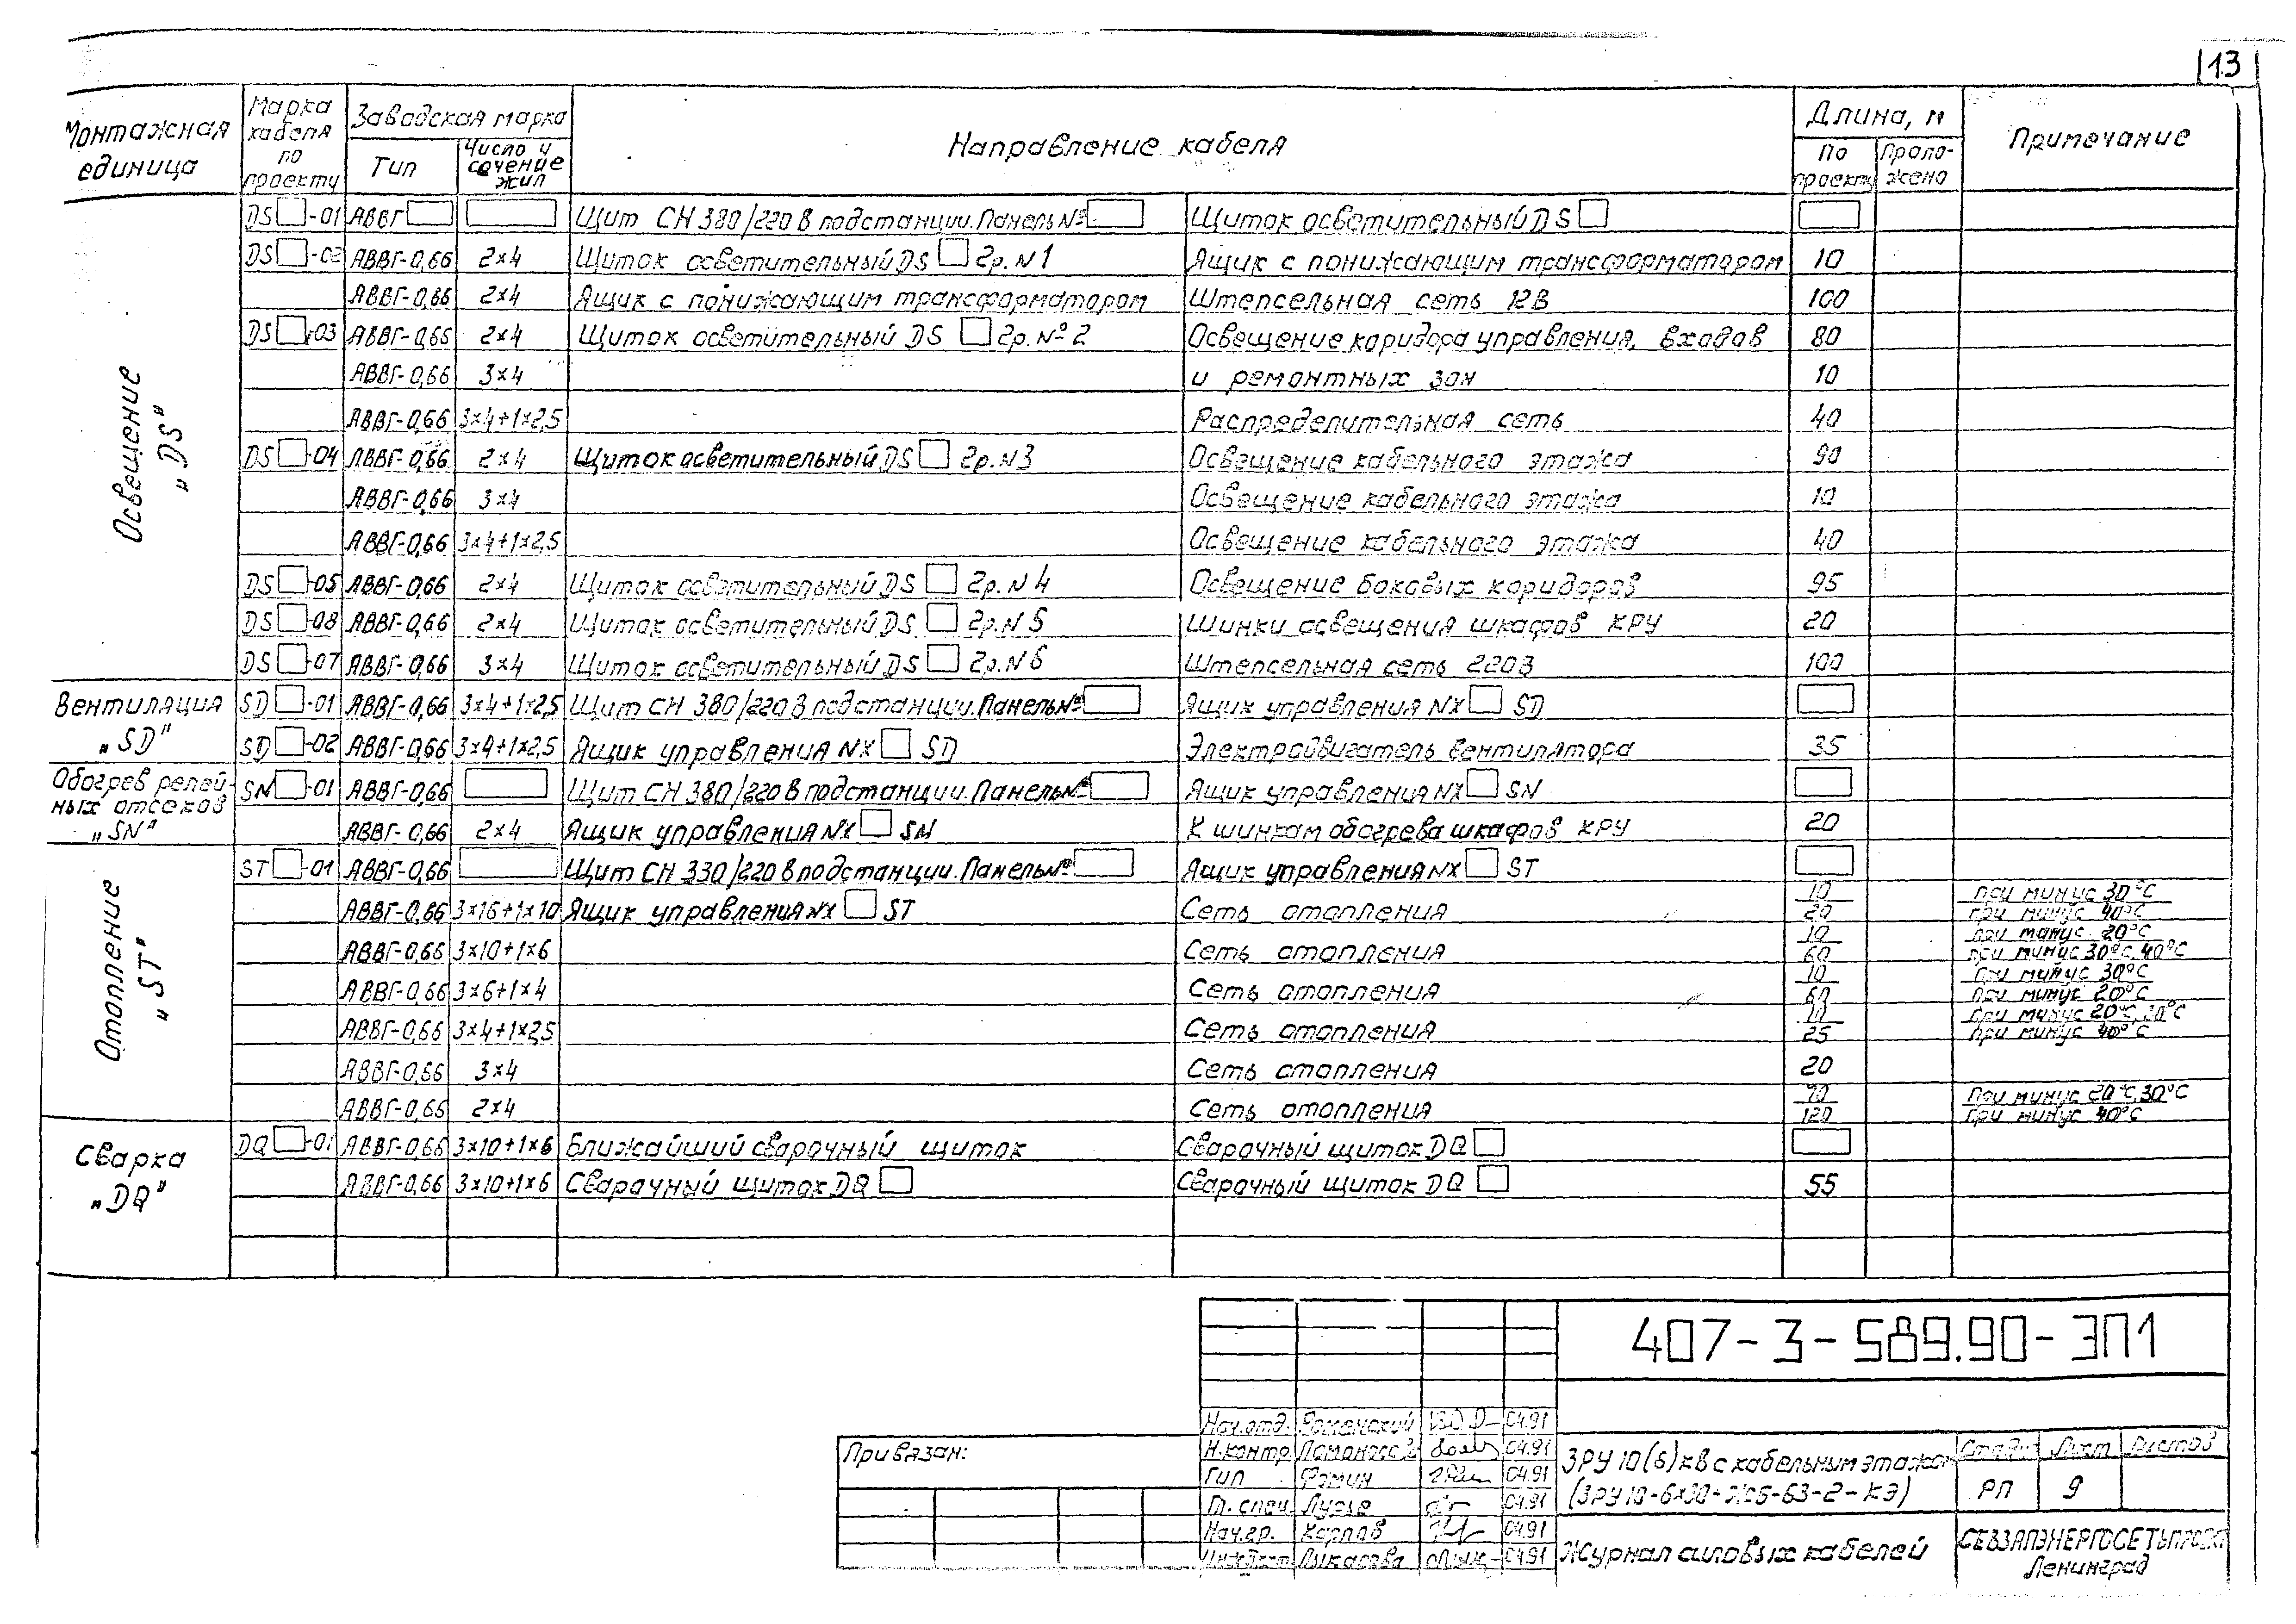 13
Монтажная единица | Марка кабеля по проекту | Заводская марка | Направление кабеля | Длина, м | Примечание
Тип | Число и сечение жил | По проекту | Проложено
Освещение „DS"
DS□-01 АВВГ□ □ Щит СН 380/220В подстанции. Панель №□ Щиток осветительный DS□ □
DS□-02 АВВГ-0,66 2×4 Щиток осветительный DS□ гр. N1 Ящик с понижающим трансформатором 10
АВВГ-0,66 2×4 Ящик с понижающим трансформатором Штепсельная сеть 12В 100
DS□-03 АВВГ-0,66 2×4 Щиток осветительный DS□ гр. №2 Освещение коридора управления, входов 80
АВВГ-0,66 3×4 и ремонтных зон 10
АВВГ-0,66 3×4+1×2,5 Распределительная сеть 40
DS□-04 АВВГ-0,66 2×4 Щиток осветительный DS□ гр. N3 Освещение кабельного этажа 90
АВВГ-0,66 3×4 Освещение кабельного этажа 10
АВВГ-0,66 3×4+1×2,5 Освещение кабельного этажа 40
DS□-05 АВВГ-0,66 2×4 Щиток осветительный DS□ гр. N4 Освещение боковых коридоров 95
DS□-08 АВВГ-0,66 2×4 Щиток осветительный DS□ гр. N5 Шинки освещения шкафов КРУ 20
DS□-07 АВВГ-0,66 3×4 Щиток осветительный DS□ гр. N6 Штепсельная сеть 220В 100
Вентиляция „SD"
SD□-01 АВВГ-0,66 3×4+1×2,5 Щит СН 380/220В подстанции. Панель №□ Ящик управления NX□ SD □
SD□-02 АВВГ-0,66 3×4+1×2,5 Ящик управления NX□ SD Электродвигатель вентилятора 35
Обогрев релейных отсеков „SN"
SN□-01 АВВГ-0,66 □ Щит СН 380/220В подстанции. Панель №□ Ящик управления NX□ SN □
АВВГ-0,66 2×4 Ящик управления NX□ SN К шинкам обогрева шкафов КРУ 20
Отопление „ST"
ST□-01 АВВГ-0,66 □ Щит СН 330/220В подстанции. Панель №□ Ящик управления NX□ ST □
АВВГ-0,66 3×16+1×10 Ящик управления NX□ ST Сеть отопления 10 при минус 30°С
20 при минус 40°С
АВВГ-0,66 3×10+1×6 Сеть отопления 10 при минус 20°С
60 при минус 30°С, 40°С
АВВГ-0,66 3×6+1×4 Сеть отопления 10 при минус 30°С
60 при минус 20°С
АВВГ-0,66 3×4+1×2,5 Сеть отопления 10 при минус 20°С, 30°С
25 при минус 40°С
АВВГ-0,66 3×4 Сеть отопления 20
АВВГ-0,66 2×4 Сеть отопления 70 при минус 20°С, 30°С
120 при минус 40°С
Сварка „DQ"
DQ□-01 АВВГ-0,66 3×10+1×6 Ближайший сварочный щиток Сварочный щиток DQ□ □
АВВГ-0,66 3×10+1×6 Сварочный щиток DQ□ Сварочный щиток DQ□ 55
407-3-589.90-ЭП1
Привязан:
Нач.отд. Роменский 04.91
Н.контр. 04.91
Гип Фомин 04.91
Гл. спец. Лурье 04.91
Нач.гр. Карпов 04.91
04.91
ЗРУ 10(6)кВ с кабельным этажом
(ЗРУ10-6×30-ЖБ-63-2-КЭ)
Стадия Лист Листов
РП 9
Журнал силовых кабелей
СЕВЗАПЭНЕРГОСЕТЬПРОЕКТ
Ленинград